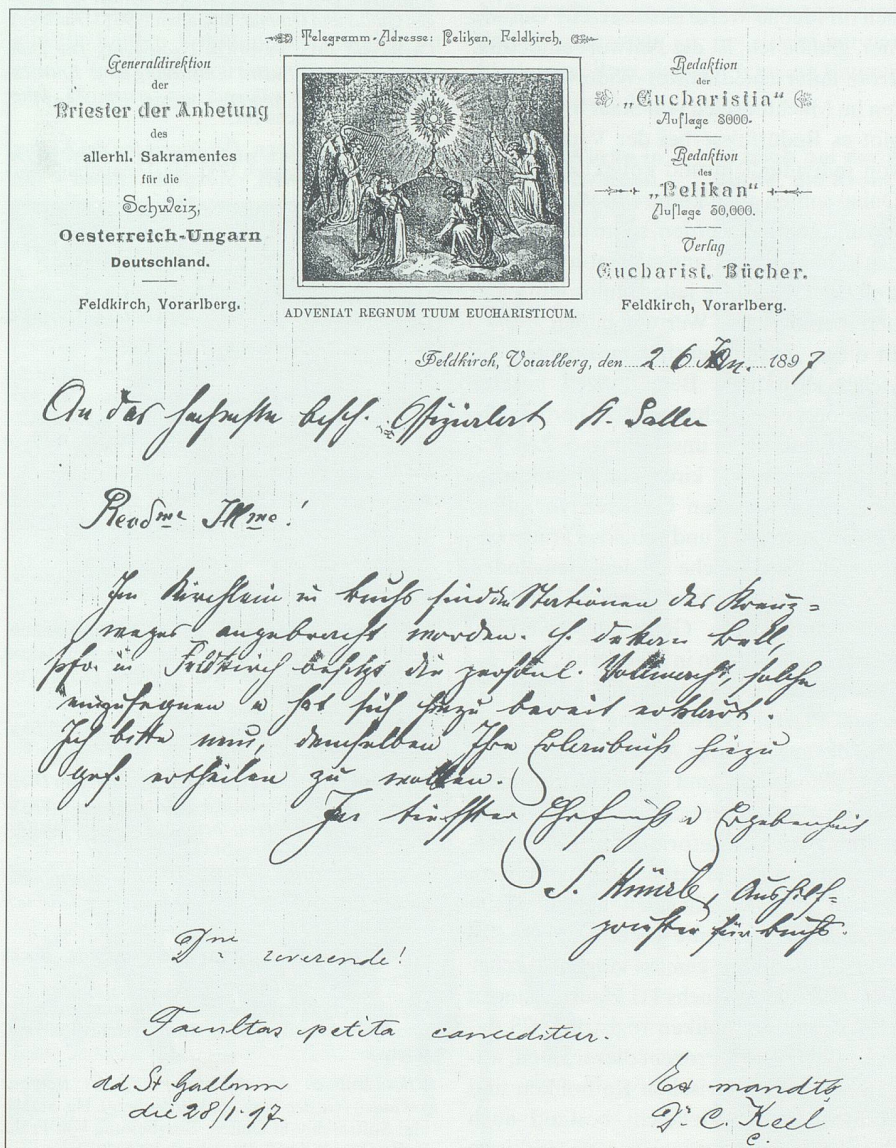 Telegramm-Adresse: Pelikan, Feldkirch.
Generaldirektion
der
Priester der Anbetung
des
allerhl. Sakramentes
für die
Schweiz,
Oesterreich-Ungarn
Deutschland.
Feldkirch, Vorarlberg.
ADVENIAT REGNUM TUUM EUCHARISTICUM.
Redaktion
der
„Eucharistia“
Auflage 8000.
Redaktion
des
„Pelikan“
Auflage 50,000.
Verlag
Eucharist. Bücher.
Feldkirch, Vorarlberg.
Feldkirch, Vorarlberg, den 26 Jan. 1897
An das hochwste bisch. Offizialat St. Gallen
Revdme Illme!
Im Kirchlein in Buchs sind die Stationen des Kreuz=
weges angebracht worden. H. Dekan
Pfr. in Feldkirch besitzt die persönl. Vollmacht, solche
einzusegnen u hat sich hiezu bereit erklärt.
Ich bitte nun, demselben Ihre Erlaubniß hiezu
gef. ertheilen zu wollen.
In tiefster Ehrfurcht u Ergebenheit
Künzle, Aushilfs=
priester für Buchs.
Dne reverende!
Facultas petita conceditur.
dd St Gallum
die 28/1.97.
Ex mandto
Dr C. Keel
c.